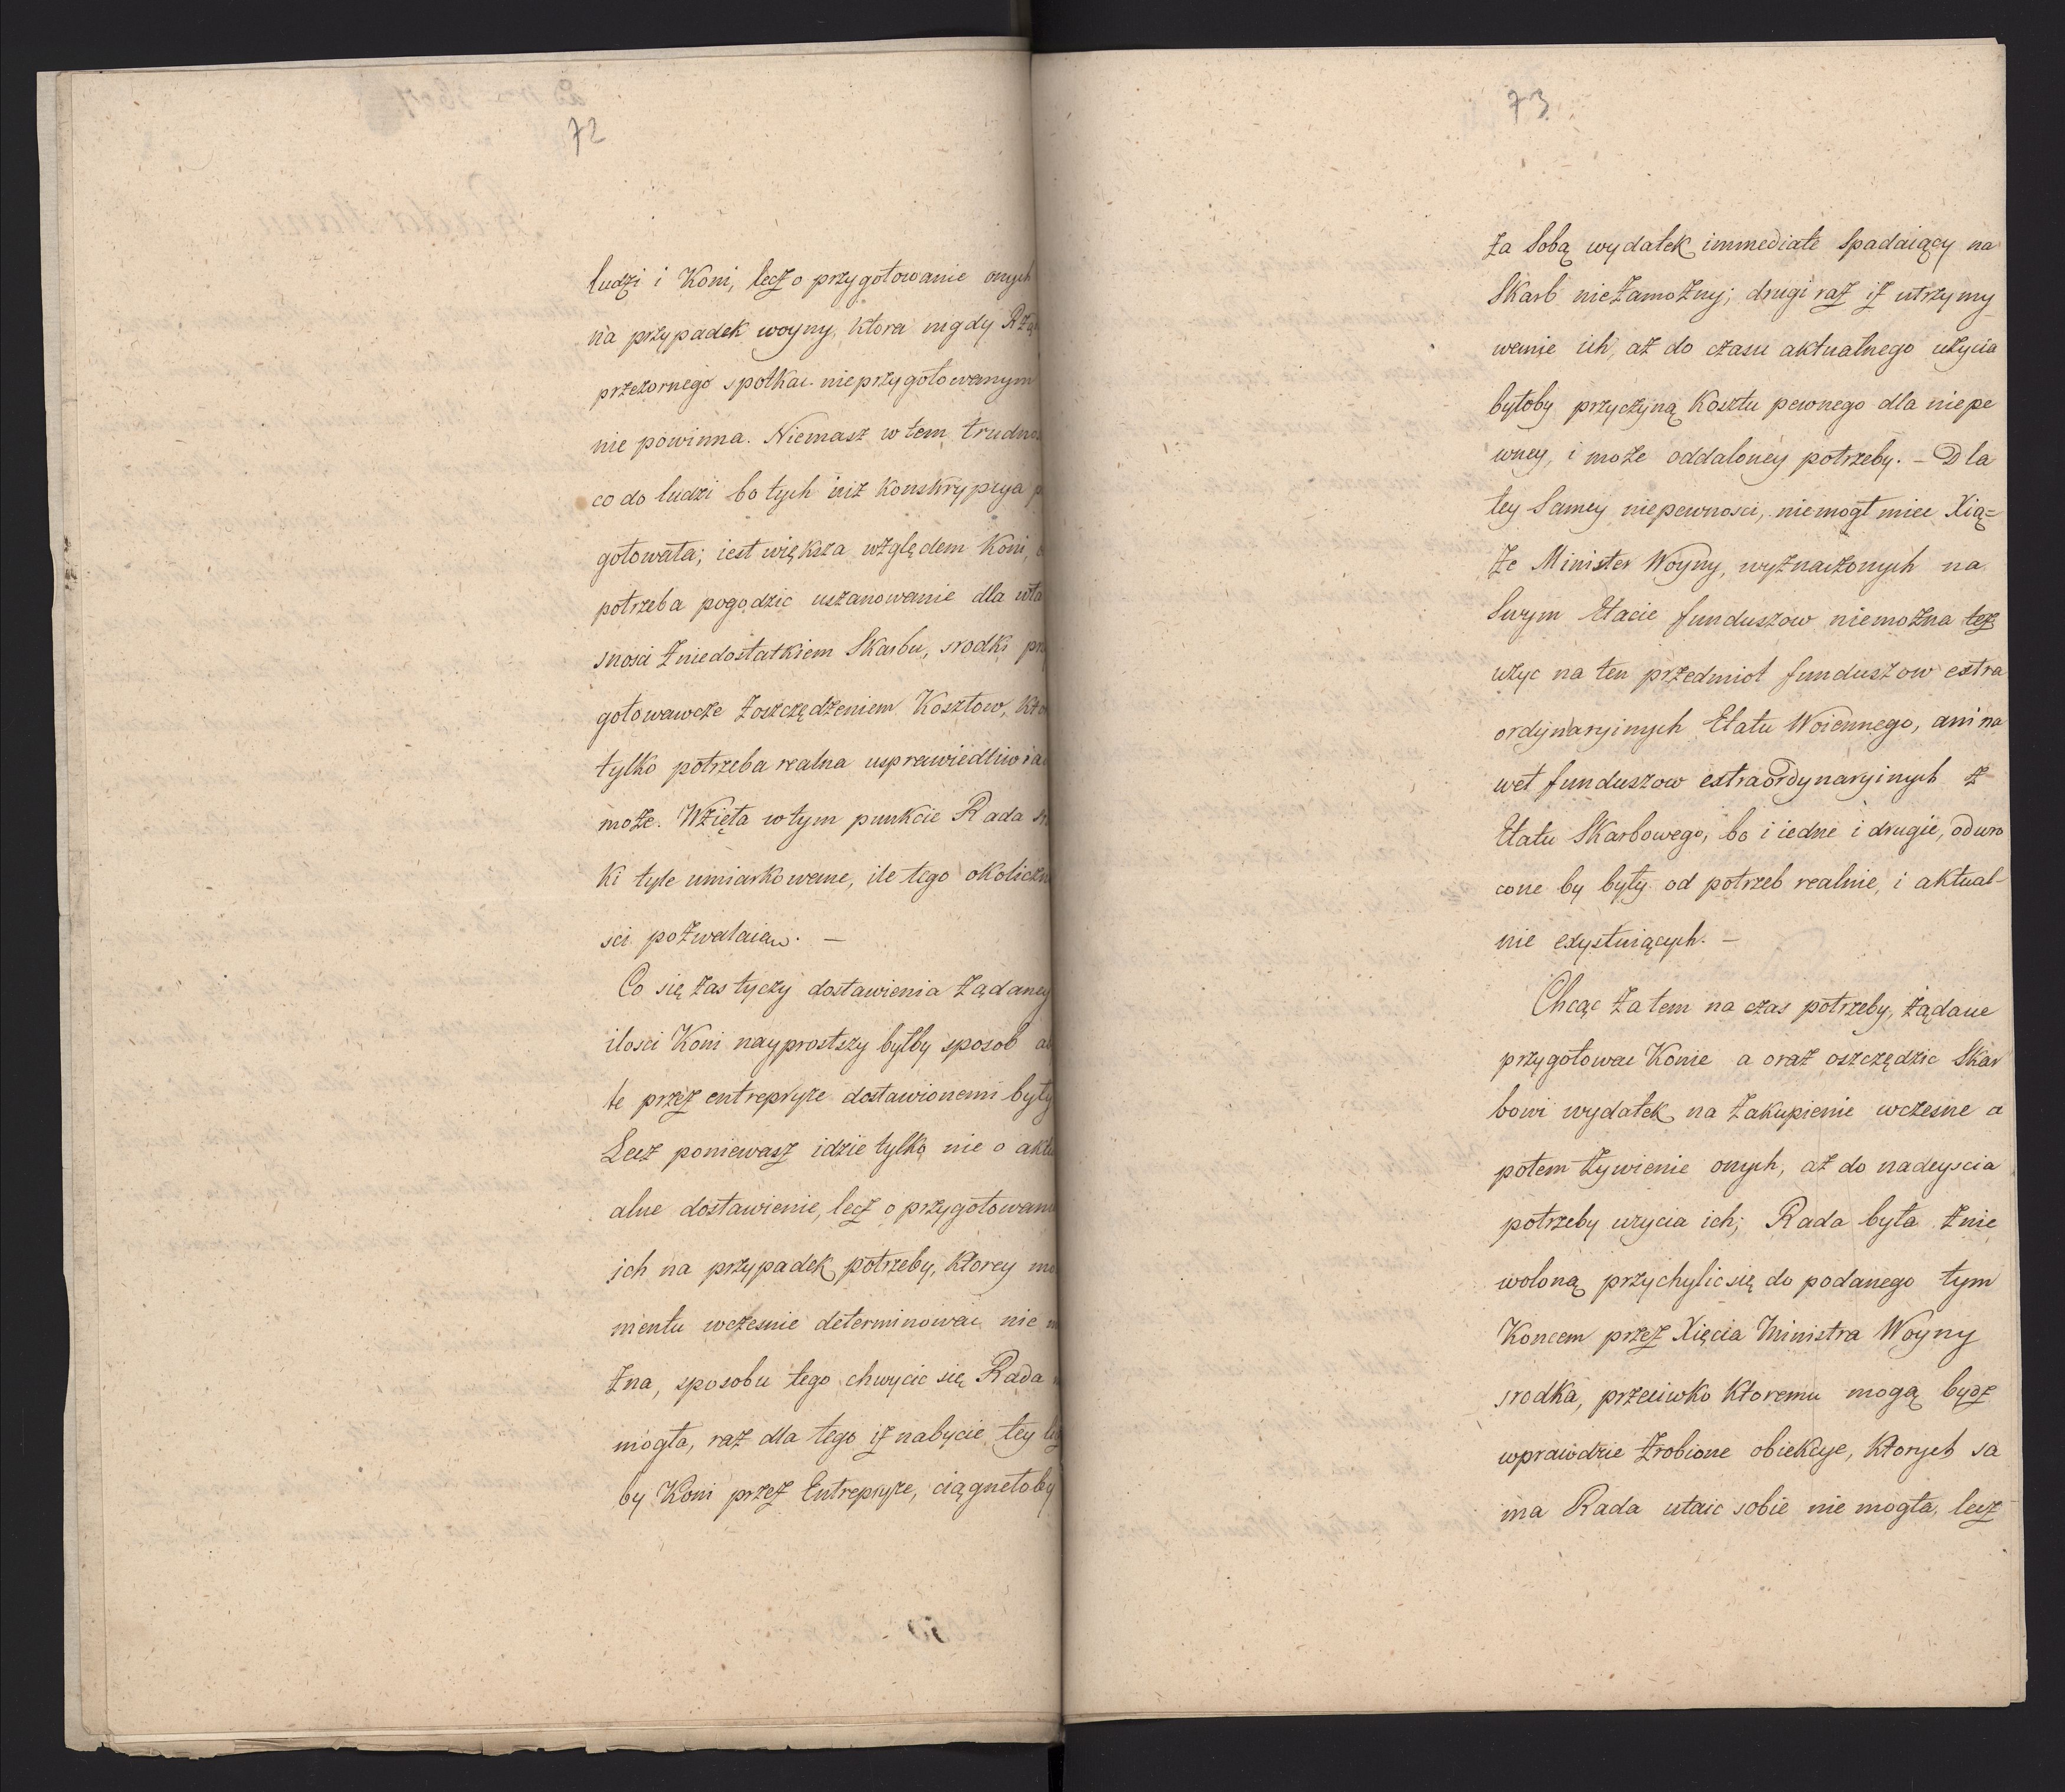 72
ludzi i Koni, lecz o przygotowanie onych
na przypadek woyny, ktora nigdy Rzą
przezornego spotkac nieprzygotowanym
nie powinna. Niemasz w tem trudno
co do ludzi bo tych iuz konskrypcya p
gotowała; iest większa względem Koni,
potrzeba pogodzic uszanowanie dla wła
snosci z niedostatkiem Skarbu, srodki prz
gotowawcze z oszczędzeniem Kosztow, kto
tylko potrzeba realna usprawiedliwia
może. Wzięła w tym punkcie Rada sr
ki tyle umiarkowane, ile tego okoliczn
sci pozwalaią. —
Co się zas tyczy dostawienia żądaney
ilosci Koni nayprostszy byłby sposob a
te przez entrepryze dostawionemi były
Lecz poniewasz idzie tylko nie o aktu
alne dostawienie, lecz o przygotowani
ich na przypadek potrzeby, ktorey mo
mentu wczesnie determinowac nie m
żna, sposobu tego chwycic się Rada n
mogła, raz dla tego iż nabycie tey lic
by Koni przez Entrepryze, ciągnełoby
73
za sobą wydatek immediate spadaiący na
Skarb niezamożny; drugi raz iż utrzymy
wanie ich, aż do czasu aktualnego użycia
byłoby przyczyną kosztu pewnego dla niepe
wney, i może oddaloney potrzeby. — Dla
tey samey niepewnosci, niemogł miec Xią=
że Minister Woyny, wyznaczonych na
swym Etacie funduszow niemożna też
użyc na ten przedmiot funduszow extra
ordynaryinych Etatu Woiennego, ani na
wet funduszow extraordynaryinych z
Etatu Skarbowego, bo i iedne i drugie, odwro
cone by były od potrzeb realnie, i aktual-
nie exystuiących. —
Chcąc zatem na czas potrzeby, żądane
przygotowac Konie a oraz oszczędzic Skar
bowi wydatek na zakupienie wczesne a
potem żywienie onych, aż do nadeyscia
potrzeby uzycia ich; Rada była znie
woloną przychylic się do podanego tym
Koncem przez Xięcia Ministra Woyny
srodka, przeciwko ktoremu mogą bydz
wprawdzie zrobione obiekcye, ktorych sa
ma Rada utaic sobie nie mogła, lecz